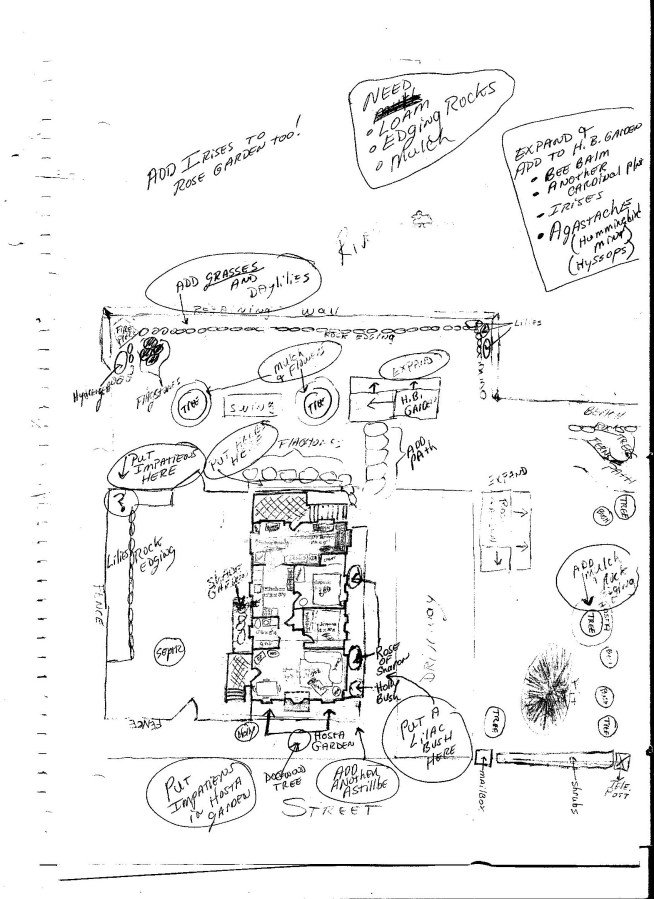 NEED
• LOAM
• EDGING ROCKS
• Mulch
ADD IRISES TO
ROSE GARDEN TOO!
EXPAND &
ADD TO H.B. GARDEN
• BEE BALM
• ANOTHER
CARDINAL
- IRISES
• AGASTACHE
(Hummingbird
MINT)
(Hyssops)
ADD GRASSES
AND
DAYLILIES
RETAINING WALL
FIRE
ROCK EDGING
LILIES
FLAGSTONES
MULCH
& FLOWERS
TREE
SWING
TREE
EXPAND
H.B.
GARDEN
PUT
IMPATIENS
HERE
PUT
HERE
FLAGSTONES
ADD
PATH
?
LILIES
ROCK
EDGING
FENCE
EXPAND
PATH
TREE
ADD MULCH
HOSTA
TREE
SEPTIC
DRIVEWAY
ROSE
OF
SHARON
HOLLY
BUSH
PUT A
LILAC
BUSH
HERE
TREE
TREE
FENCE
HOLLY
HOSTA
GARDEN
DOGWOOD
TREE
PUT
IMPATIENS
IN HOSTA
GARDEN
ADD
ANOTHER
ASTILBE
STREET
MAILBOX
SHRUBS
TELE.
POST